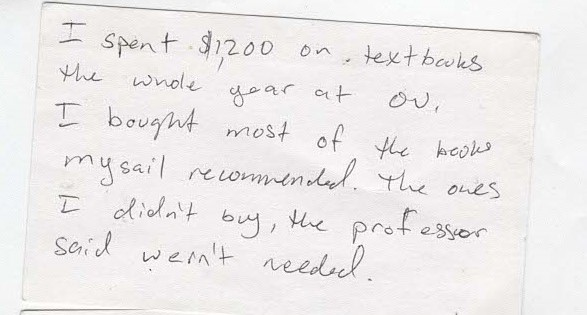 I spent $1,200 on textbooks
the whole year at OU.
I bought most of the books
mysail recommended. The ones
I didn't buy, the professor
said wern't needed.